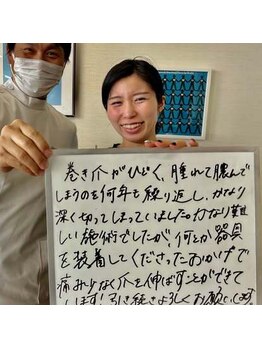 巻き爪がひどく、腫れて膿んで
しまうのを何年も繰り返し、かなり
深く切ってしまっていました。かなり難
しい施術でしたが、何とか器具
を装着してくださったおかげで
痛み少なく爪を伸ばすことができて
います！引き続きよろしくお願い